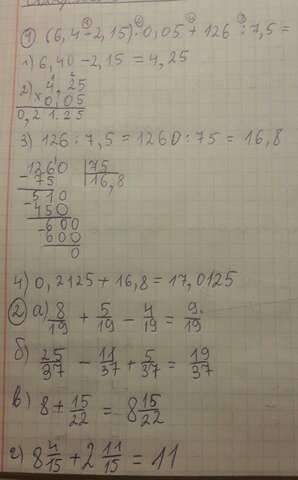 ① (6,4-2,15)·0,05 + 126 : 7,5 =
1) 6,40 - 2,15 = 4,25
2) 4,25
× 0,05
0,2125
3) 126 : 7,5 = 1260 : 75 = 16,8
1260 75
- 75 16,8
- 510
450
- 600
600
0
4) 0,2125 + 16,8 = 17,0125
② а) 8/19 + 5/19 - 4/19 = 9/19
б) 25/37 - 11/37 + 5/37 = 19/37
в) 8 + 15/22 = 8 15/22
г) 8 4/15 + 2 11/15 = 11